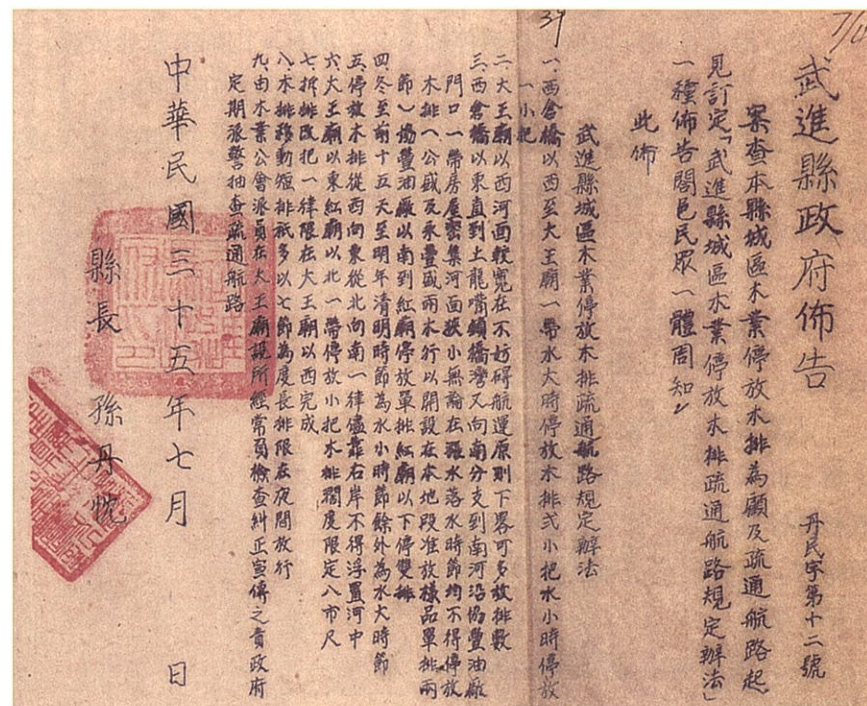 武進縣政府佈告
丹民字第十二號
案查本縣城區木業停放木排為顧及疏通航路起
見訂定「武進縣城區木業停放木排疏通航路規定辦法」
一種佈告闔邑民眾一體周知
此佈
武進縣城區木業停放木排疏通航路規定辦法
一、西倉橋以西至大王廟一帶水大時停放木排弍小把水小時停放
一小把
二、大王廟以西河面較寬在不妨碍航運原則下畧可多放排數
三、西倉橋以東直到土龍嘴鎖橋灣又向南分支到南河沿協豐油廠
門口一帶房屋密集河面狹小無論在漲水落水時節均不得停放
木排(公盛及永豐盛兩木行以開設在本地段准放樣品單排兩
節)協豐油廠以南到紅廟停放單排紅廟以下停雙排
四、冬至前十五天至明年清明時節為水小時節餘外為水大時節
五、停放木排從西向東從北向南一律儘靠右岸不得浮置河中
六、大王廟以東紅廟以北一帶停放小把木排闊度限定八市尺
七、拆排改把一律限在大王廟以西完成
八、木排移動短排祇多以七節為度長排限在夜間放行
九、由木業公會派員在大王廟設所經常負檢查糾正宣傳之責政府
定期派警抽查疏通航路
中華民國三十五年七月 日
縣長 孫丹忱
39
7/